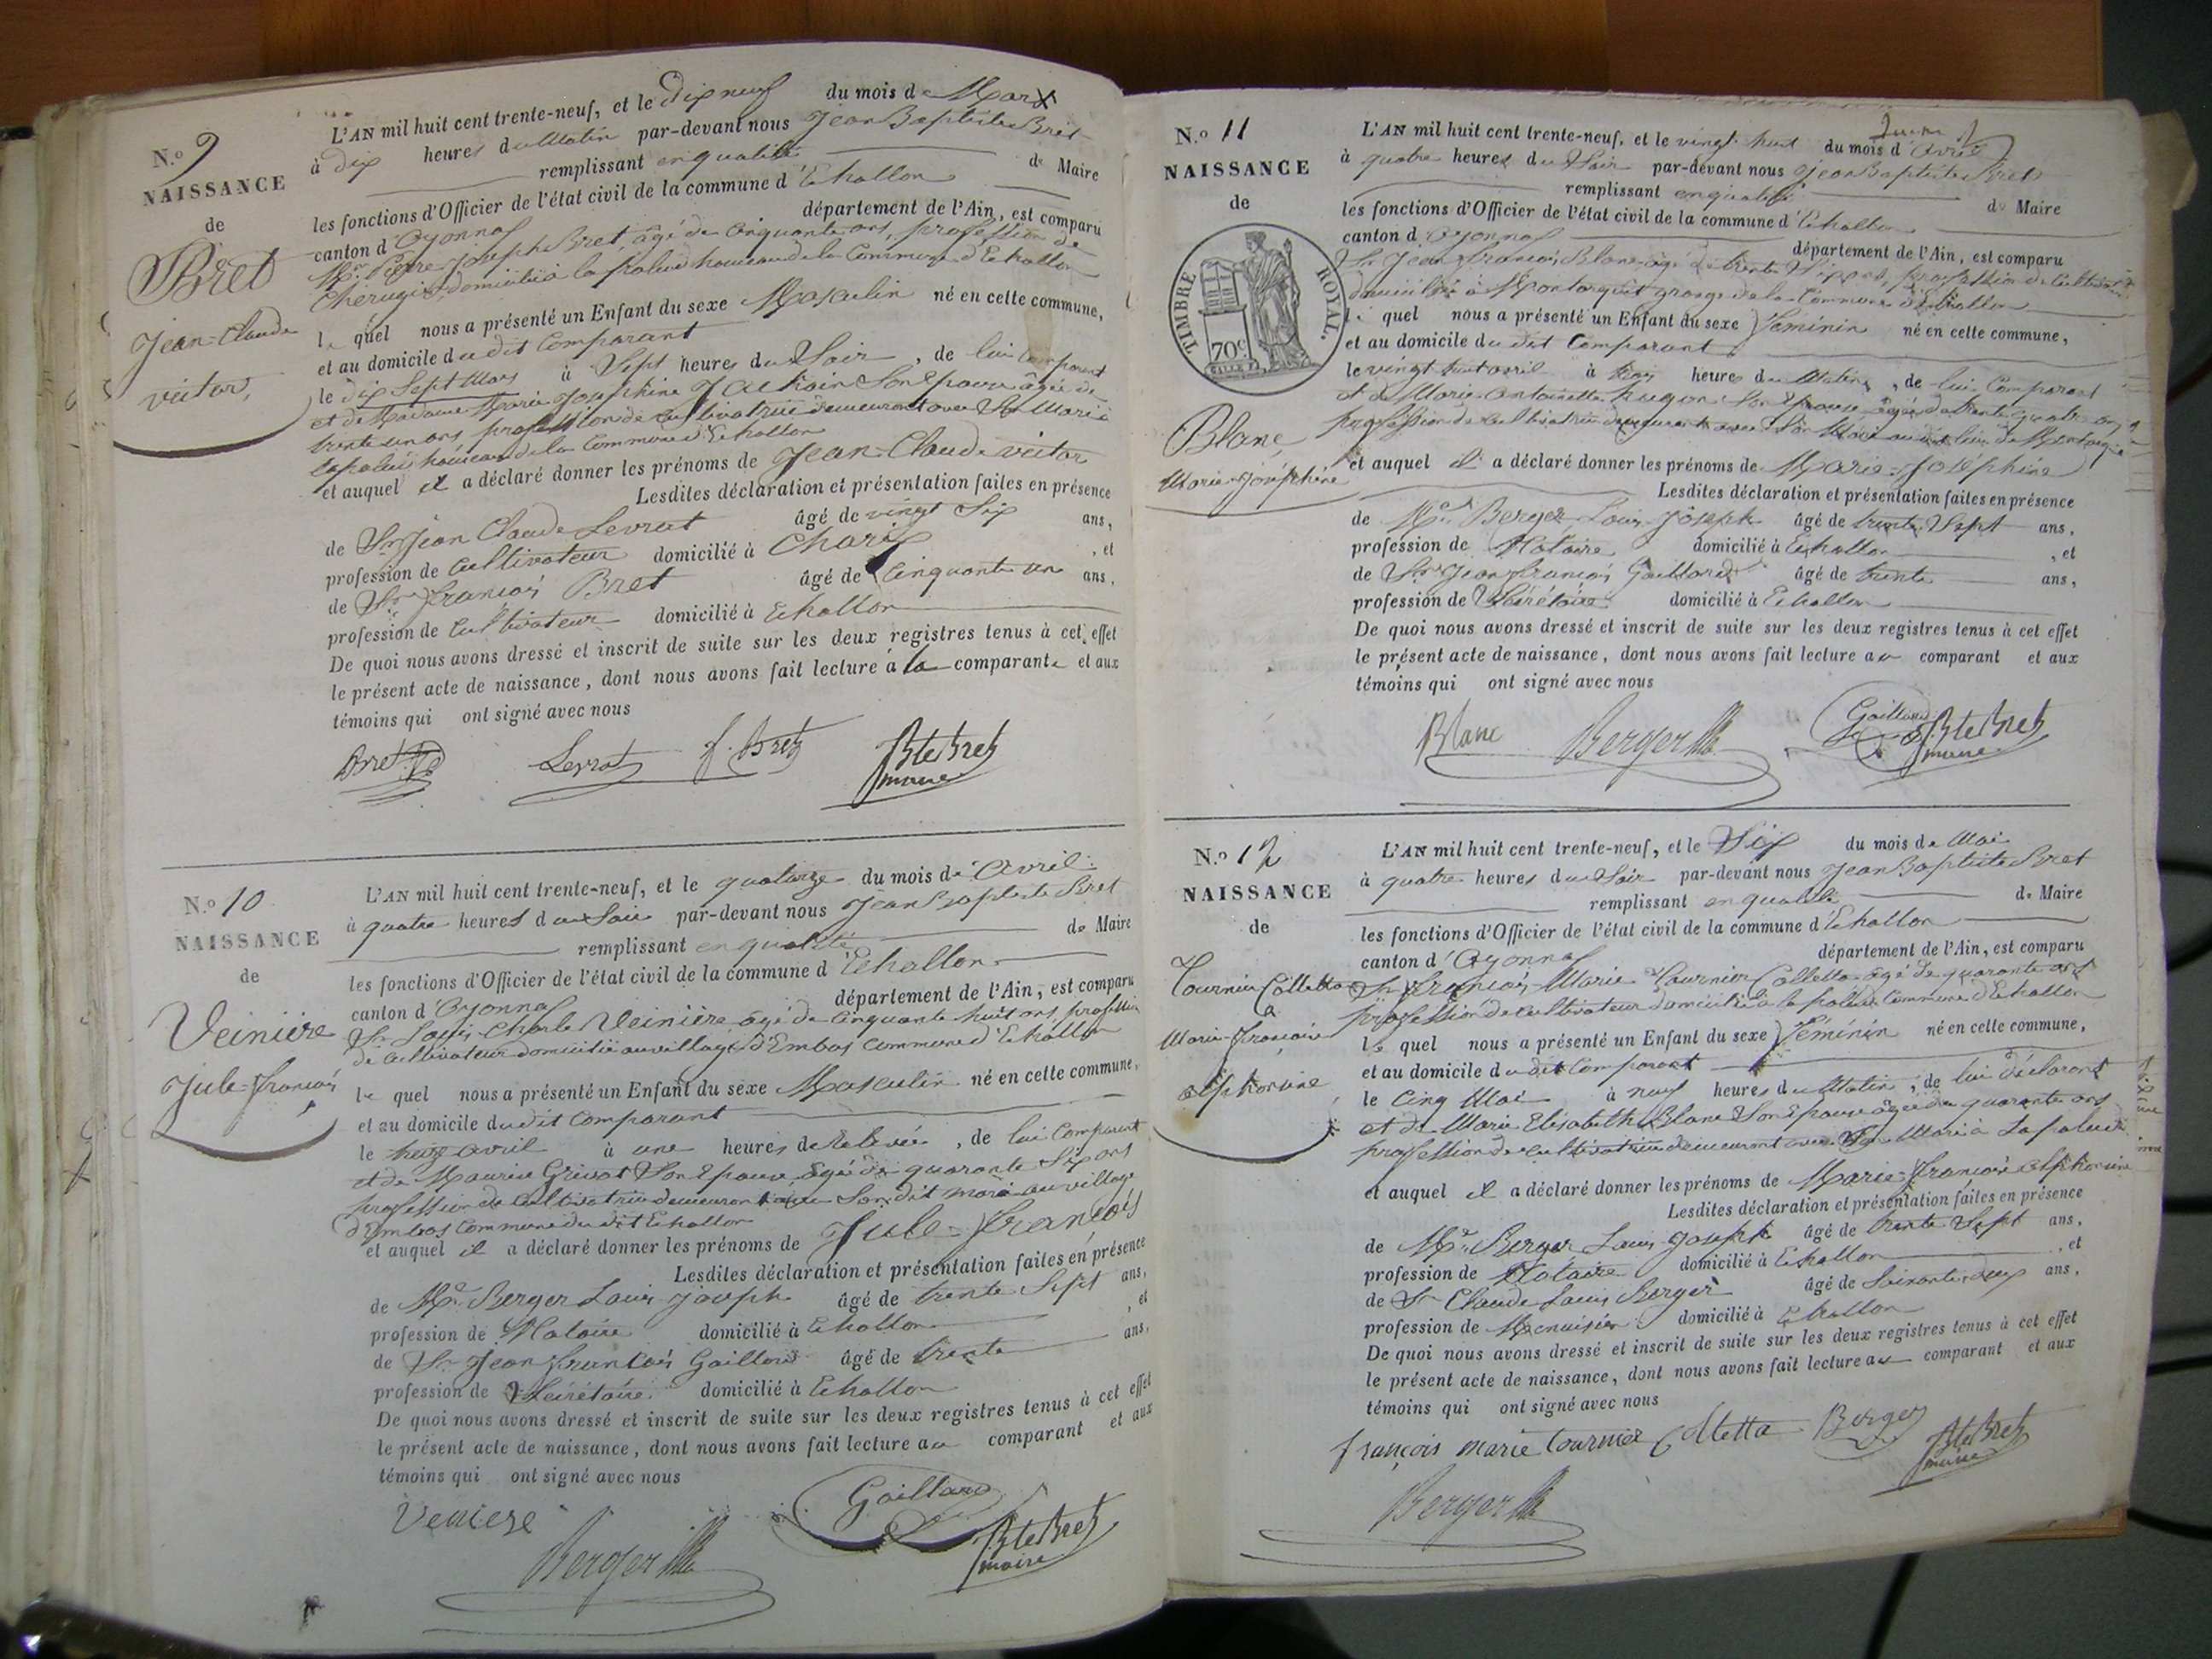 N.o 9
NAISSANCE
de
Bret
Jean-Claude
victor,
L'AN mil huit cent trente-neuf, et le Dix neuf du mois de Mars
à dix heures du Matin par-devant nous Jean Baptiste Bret
remplissant en qualité de Maire
les fonctions d'Officier de l'état civil de la commune d'Echallon
canton d'Oyonnas département de l'Ain, est comparu
Mr. Pierre Joseph Bret, âgé de Cinquante ans, profession de
Cherugien domicilié à la palud hameau de la Commune d'Echallon
le quel nous a présenté un Enfant du sexe Masculin né en cette commune,
et au domicile du dit Comparant
le dix Sept Mars à Sept heures du Soir, de lui comparant
et de Madame Marie Josephine son Epouse âgée de
trente un ans profession de cultivatrice demeurant avec St Mari à
lapalud hameau de la Commune d'Echallon
et auquel il a déclaré donner les prénoms de Jean-Claude victor
Lesdites déclaration et présentation faites en présence
de Sr. Jean Claude Levrat âgé de vingt Six ans,
profession de Cultivateur domicilié à Charix, et
de Sr. françois Bret âgé de Cinquante un ans,
profession de Cultivateur domicilié à Echallon
De quoi nous avons dressé et inscrit de suite sur les deux registres tenus à cet effet
le présent acte de naissance, dont nous avons fait lecture à la comparante et aux
témoins qui ont signé avec nous
Bret Levrat f. Bret Bte Bret
maire
N.o 10
NAISSANCE
de
Veiniére
Jule-françois
L'AN mil huit cent trente-neuf, et le quatorze du mois de Avril
à quatre heures du Soir par-devant nous Jean Baptiste Bret
remplissant en qualité de Maire
les fonctions d'Officier de l'état civil de la commune d'Echallon
canton d'Oyonnas département de l'Ain, est comparu
Sr. Louis Charle Veiniére âgé de Cinquante huit ans, profession
de Cultivateur domicilié au village d'Embas Commune d'Echallon
le quel nous a présenté un Enfant du sexe Masculin né en cette commune,
et au domicile du dit Comparant
le treize avril à une heures de relevée, de lui Comparant
et de Maurise Grivat Son Epouse âgée de quarante Six ans
profession de Cultivatrice demeurant avec Son dit mari au village
d'Embas Commune du dit Echallon
et auquel il a déclaré donner les prénoms de Jule-françois
Lesdites déclaration et présentation faites en présence
de Me. Berger Louis Joseph âgé de trente Sept ans,
profession de Notaire domicilié à Echallon, et
de Sr. Jean françois Gaillard âgé de trente ans,
profession de Sécrétaire domicilié à Echallon
De quoi nous avons dressé et inscrit de suite sur les deux registres tenus à cet effet
le présent acte de naissance, dont nous avons fait lecture au comparant et aux
témoins qui ont signé avec nous
Veniere Gaillard
Berger Bte Bret
maire
N.o 11
NAISSANCE
de
TIMBRE ROYAL.
70c
Blanc
Marie-Joséphine
L'AN mil huit cent trente-neuf, et le vingt huit du mois d'Avril
à quatre heures du Soir par-devant nous Jean Baptiste Bret
remplissant en qualité de Maire
les fonctions d'Officier de l'état civil de la commune d'Echallon
canton d'Oyonnas département de l'Ain, est comparu
Sr. Jean françois Blanc âgé de trente Six ans, profession de Cultivateur
domicilié à Montorquet grange de la Commune d'Echallon
le quel nous a présenté un Enfant du sexe féminin né en cette commune,
et au domicile du dit Comparant
le vingt huit avril à heures du Matin, de lui Comparant
et de Marie antoinette hugon Son Epouse âgée de trente quatre ans
profession de Cultivatrice demeurant avec Son Mari au dit lieu de
et auquel il a déclaré donner les prénoms de Marie-Joséphine
Lesdites déclaration et présentation faites en présence
de Me. Berger Louis Joseph âgé de trente Sept ans,
profession de Notaire domicilié à Echallon, et
de Sr. Jean françois Gaillard âgé de trente ans,
profession de Sécrétaire domicilié à Echallon
De quoi nous avons dressé et inscrit de suite sur les deux registres tenus à cet effet
le présent acte de naissance, dont nous avons fait lecture au comparant et aux
témoins qui ont signé avec nous
Blanc Berger Gaillard Bte Bret
maire
N.o 12
NAISSANCE
de
Tournier Colletta
Marie-françoise
alphonsine
L'AN mil huit cent trente-neuf, et le Six du mois de Mai
à quatre heures du Soir par-devant nous Jean Baptiste Bret
remplissant en qualité de Maire
les fonctions d'Officier de l'état civil de la commune d'Echallon
canton d'Oyonnas département de l'Ain, est comparu
Sr. françois Marie Tournier Colletta âgé de quarante ans
profession de cultivateur domicilié à la palud Commune d'Echallon
le quel nous a présenté un Enfant du sexe féminin né en cette commune,
et au domicile du dit Comparant
le Cinq Mai à neuf heures du Matin, de lui déclarant
et de Marie Elisabeth Blanc Son Epouse âgée de quarante ans
profession de cultivatrice demeurant avec Son Mari à Lapalud
et auquel il a déclaré donner les prénoms de Marie-françoise alphonsine
Lesdites déclaration et présentation faites en présence
de Me. Berger Louis Joseph âgé de trente Sept ans,
profession de Notaire domicilié à Echallon, et
de Sr Claude Louis Berger âgé de Soixante deux ans,
profession de Menuisier domicilié à Echallon
De quoi nous avons dressé et inscrit de suite sur les deux registres tenus à cet effet
le présent acte de naissance, dont nous avons fait lecture au comparant et aux
témoins qui ont signé avec nous
françois marie tournier Colletta Berger Bte Bret
maire
Berger